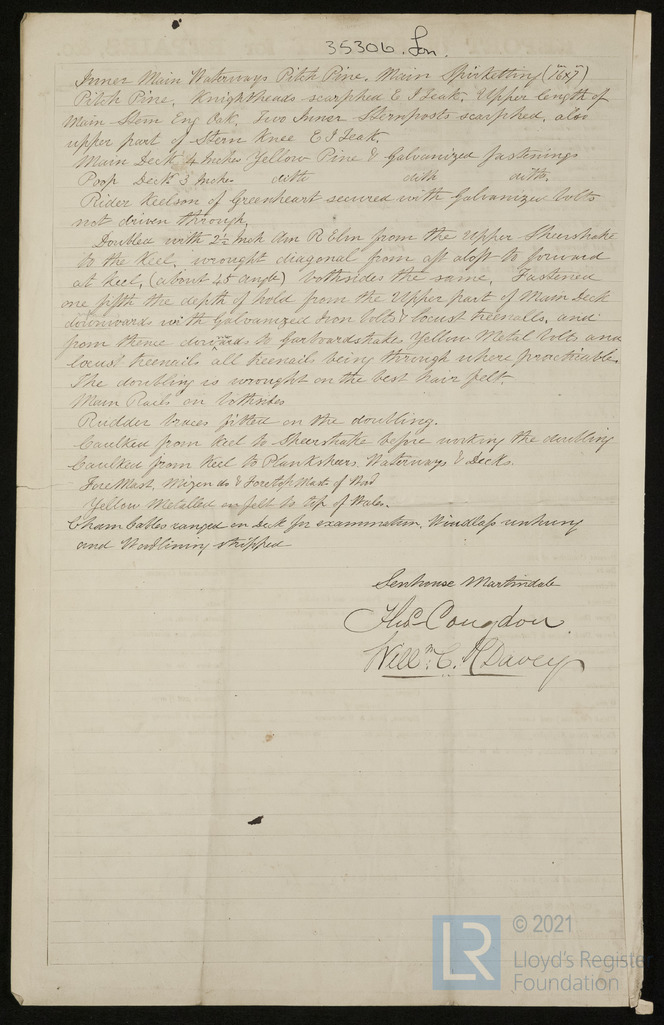 35306. Lon.
Inner Main Waterways Pitch Pine. Main Spirketting (16x7)
Pitch Pine. Knightheads scarphed E I Teak. Upper length of
Main Stem Eng Oak. Two Inner Sternposts scarphed, also
upper part of Stern Knee E I Teak.
Main Deck 4 Inches Yellow Pine & Galvanized fastenings
Poop Deck 3 Inches ditto ditto ditto.
Rider Keelson of Greenheart secured with Galvanized bolts
not driven through.
Doubled with 2½ Inch Am R Elm from the Upper Sheerstrake
to the Keel, wrought diagonal from aft aloft to forward
at keel, (about 45 angle) bothsides the same. Fastened
one fifth the depth of hold from the Upper part of Main Deck
downwards with Galvanized Iron bolts & locust treenails, and
from thence downwards to Garboardstrakes Yellow Metal bolts and
locust treenails all treenails being through where practicable.
The doubling is wrought on the best hair felt.
Main Rails on bothsides
Rudder braces fitted on the doubling.
Caulked from keel to Sheerstrake before working the doubling
Caulked from Keel to Plank sheers Waterways & Decks.
ForeMast, Mizen do & Foretop Mast of Wood
Yellow Metalled on felt to top of Wales.
Chain Cables ranged on Deck for examination. Windlass unhung
and Woodlining stripped
Senhouse Martindale
Thos Congdon
Willm. C. H Davey
© 2021
LR
Lloyd's Register
Foundation